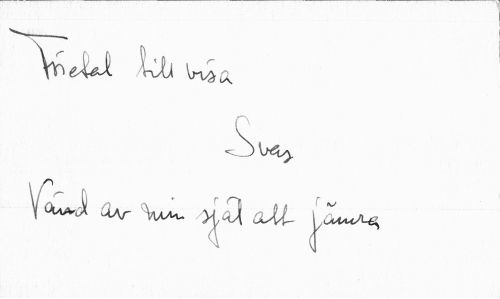 Förtal till visa
Svar
Vänd av min själ att jämra